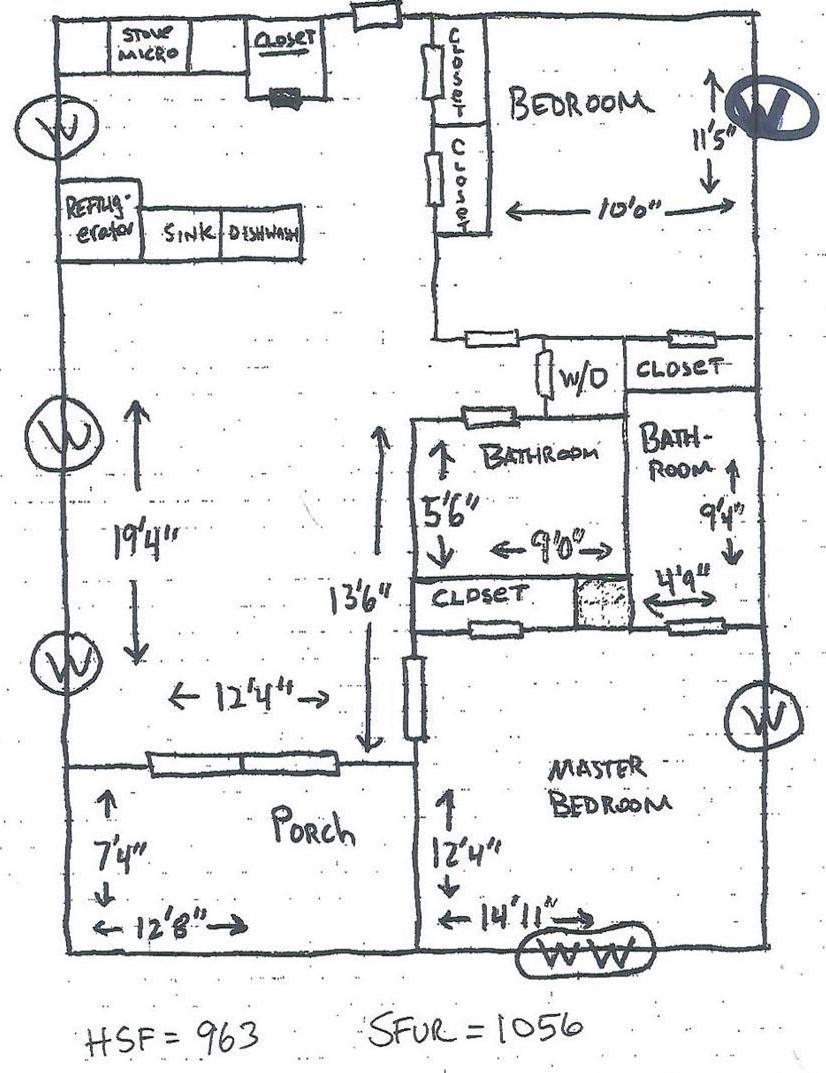 STOVE
MICRO
CLOSET
CLOSET
BEDROOM
W
11'5"
W
CLOSET
10'0"
REFRIG-
erator
SINK
DISHWASH
W/D
CLOSET
W
BATHROOM
BATH-
ROOM
19'4"
5'6"
9'0"
9'4"
13'6"
CLOSET
4'9"
W
12'4"
W
MASTER
BEDROOM
PORCH
7'4"
12'4"
12'8"
14'11"
W W
HSF = 963
SFUR = 1056